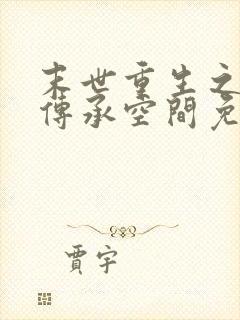 末世重生之
傳承空間免
賈宇